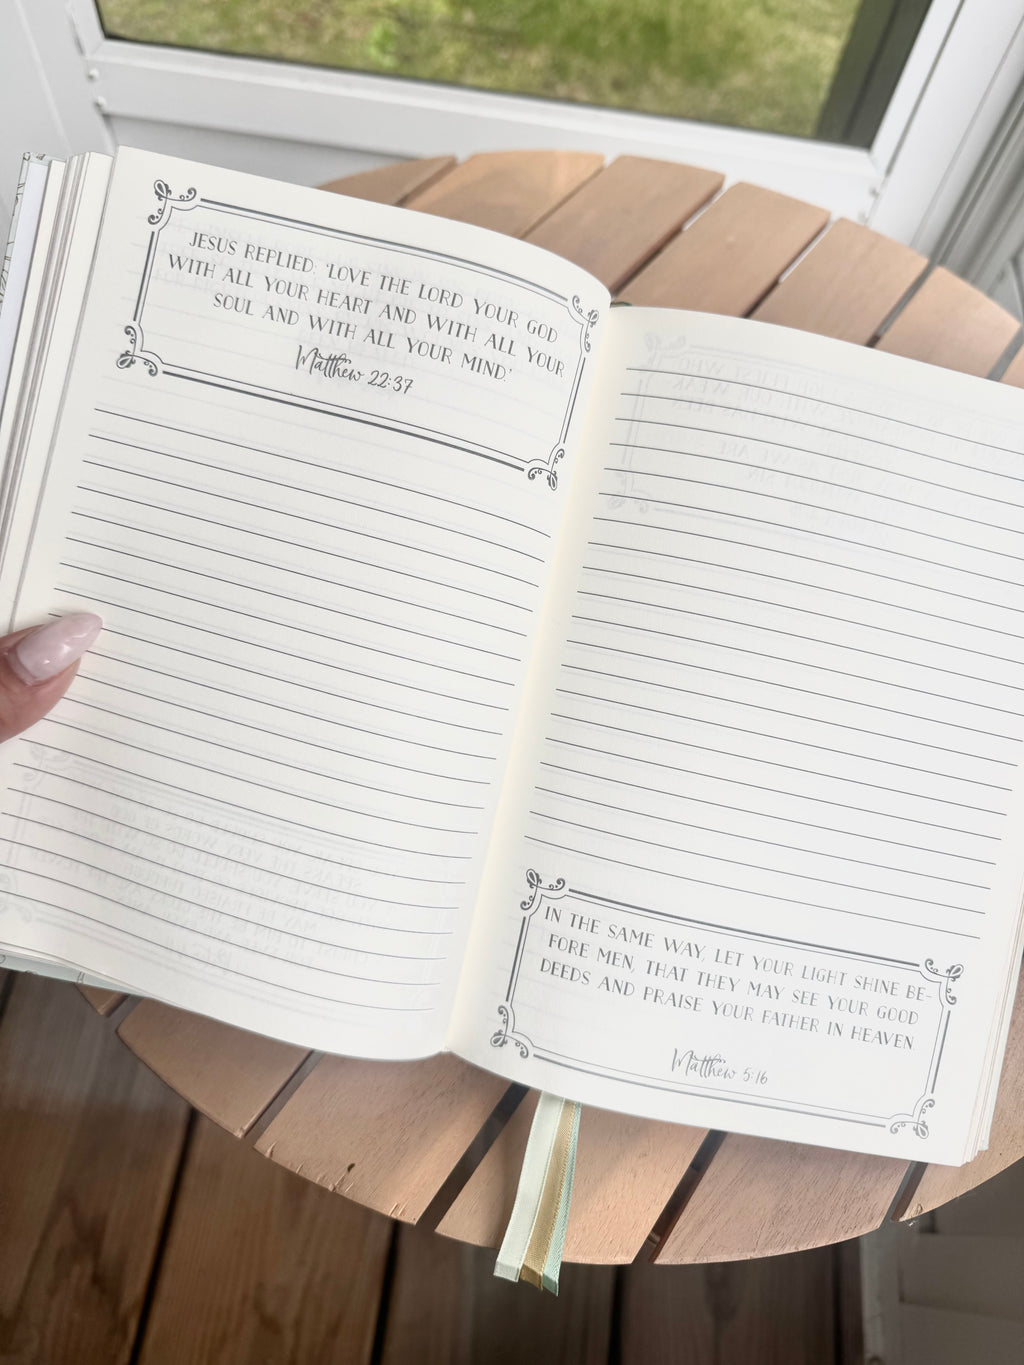 JESUS REPLIED: 'LOVE THE LORD YOUR GOD
WITH ALL YOUR HEART AND WITH ALL YOUR
SOUL AND WITH ALL YOUR MIND.'
Matthew 22:37
IN THE SAME WAY, LET YOUR LIGHT SHINE BE-
FORE MEN, THAT THEY MAY SEE YOUR GOOD
DEEDS AND PRAISE YOUR FATHER IN HEAVEN.
Matthew 5:16